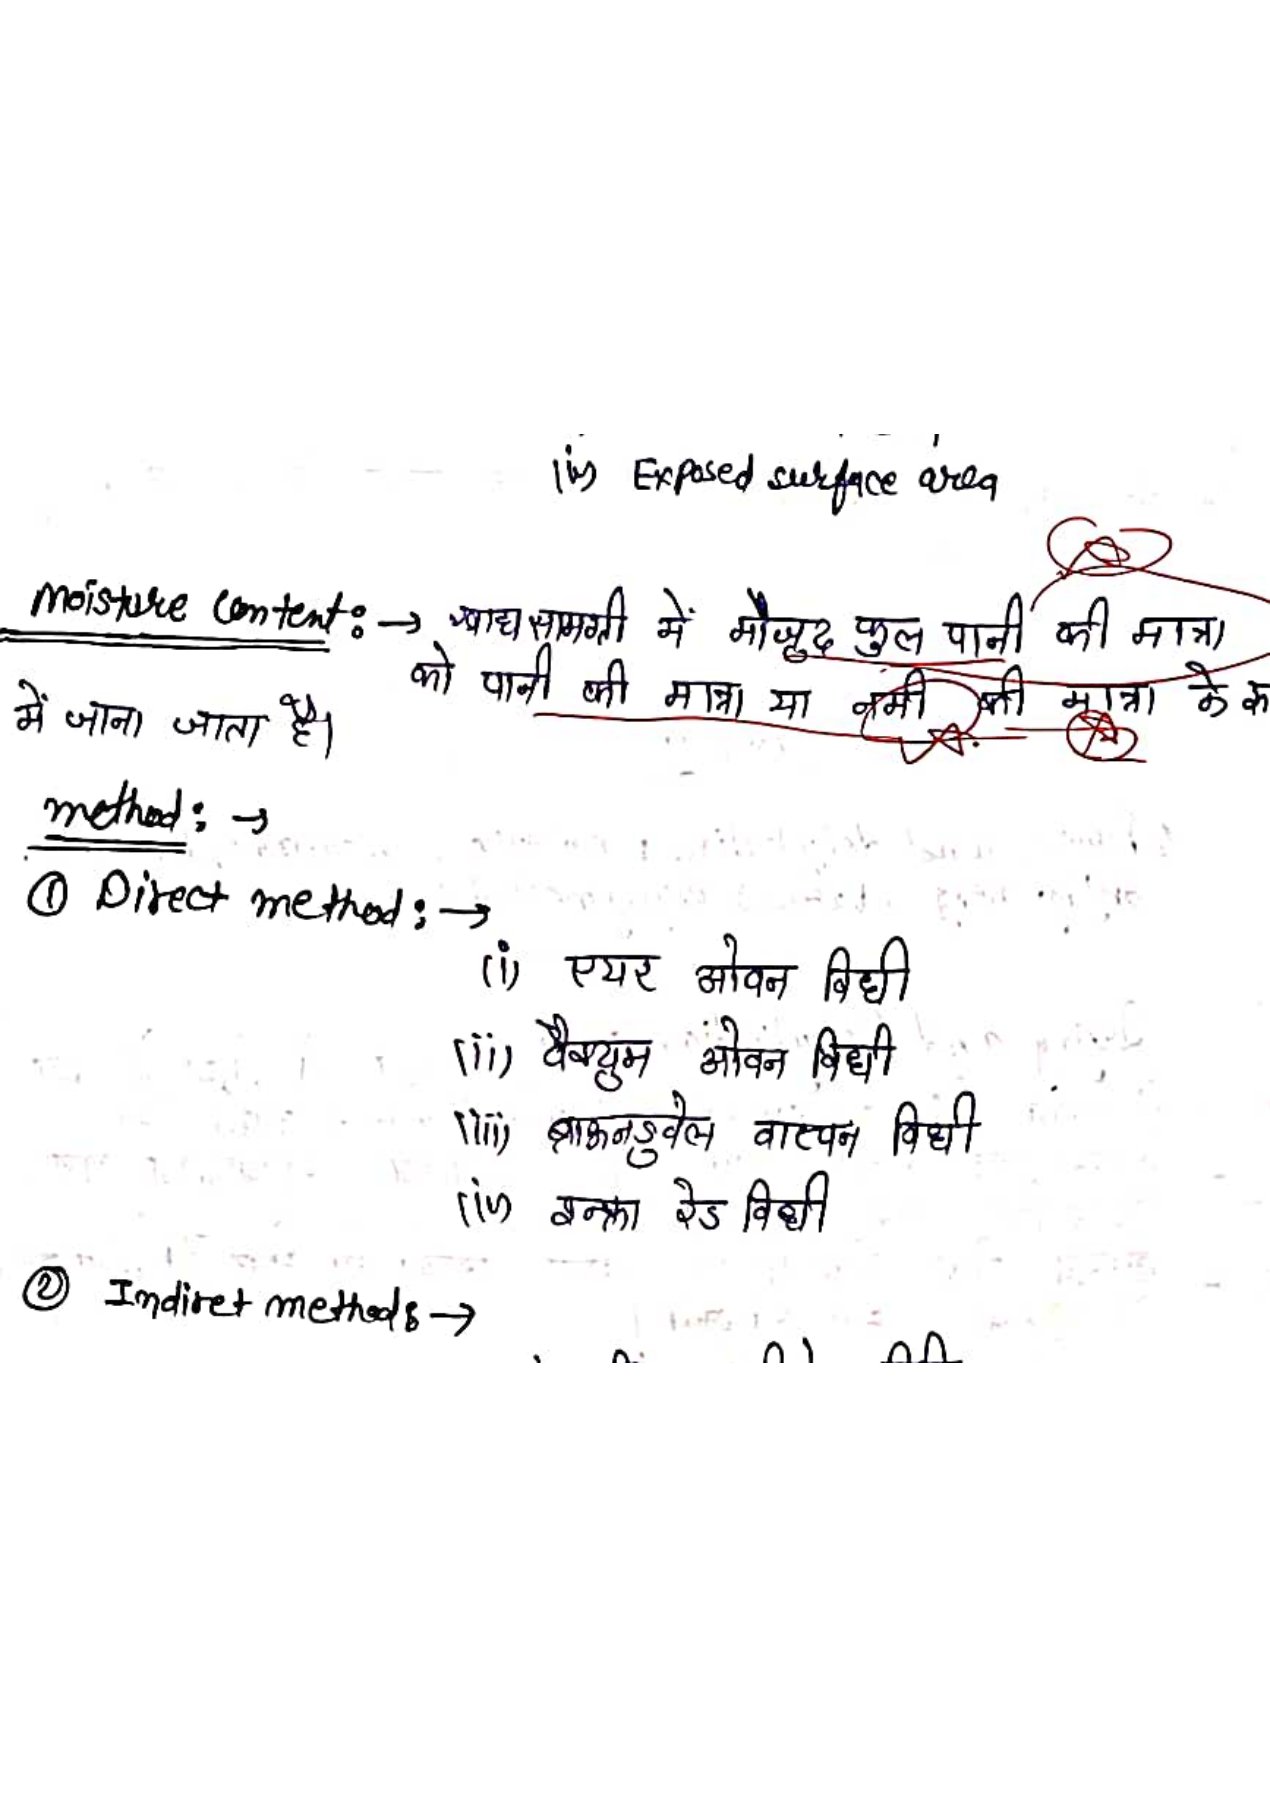 (iv) Exposed surface area
Moisture Content :→ खाद्य सामग्री में मौजूद कुल पानी की मात्रा
को पानी की मात्रा या नमी की मात्रा के
में जाना जाता है।
method : →
① Direct method : →
(i) एयर ओवन विधी
(ii) वैक्युम ओवन विधी
(iii) ब्राऊनडुवेल वाष्पन विधी
(iv) इन्फ्रा रेड विधी
② Indiret method : →